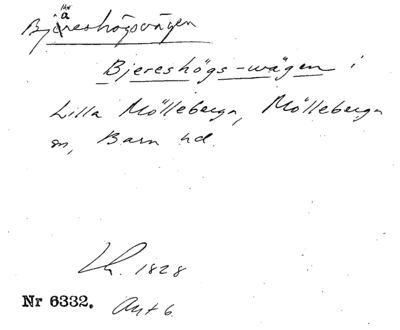 Bjäreshögsvägen
Bjereshögs-wägen i
Lilla Mölleberga, Mölleberga
sn, Bara hd.
Lh. 1828
Nr 6332. Akt 6.